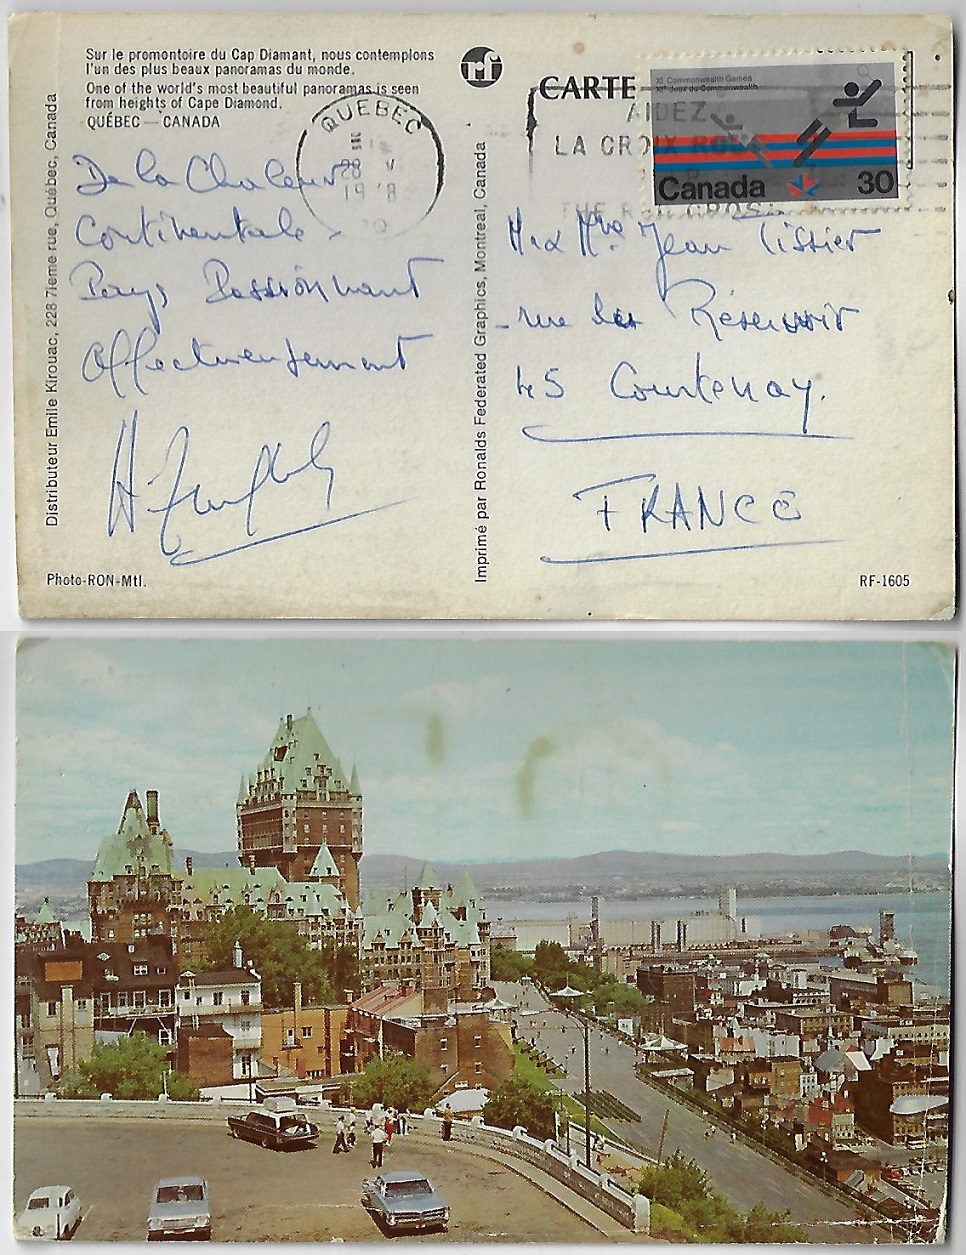 Sur le promontoire du Cap Diamant, nous contemplons
l'un des plus beaux panoramas du monde.
One of the world's most beautiful panoramas is seen
from heights of Cape Diamond.
QUÉBEC — CANADA
De la Chaleur
Continentale.
Pays Passionnant
Affectueusement
Photo-RON-Mtl.
Distributeur Emile Kirouac, 228 7ieme rue, Québec, Canada
Imprimé par Ronalds Federated Graphics, Montreal, Canada
rf
QUEBEC
28 V
CARTE
AIDEZ
LA CROIX ROUGE
THE RED CROSS
XI Commonwealth Games
XIes Jeux du Commonwealth
Canada 30
M et Mme Jean Tissier
rue des Réservoir
45 Courtenay.
FRANCE
RF-1605